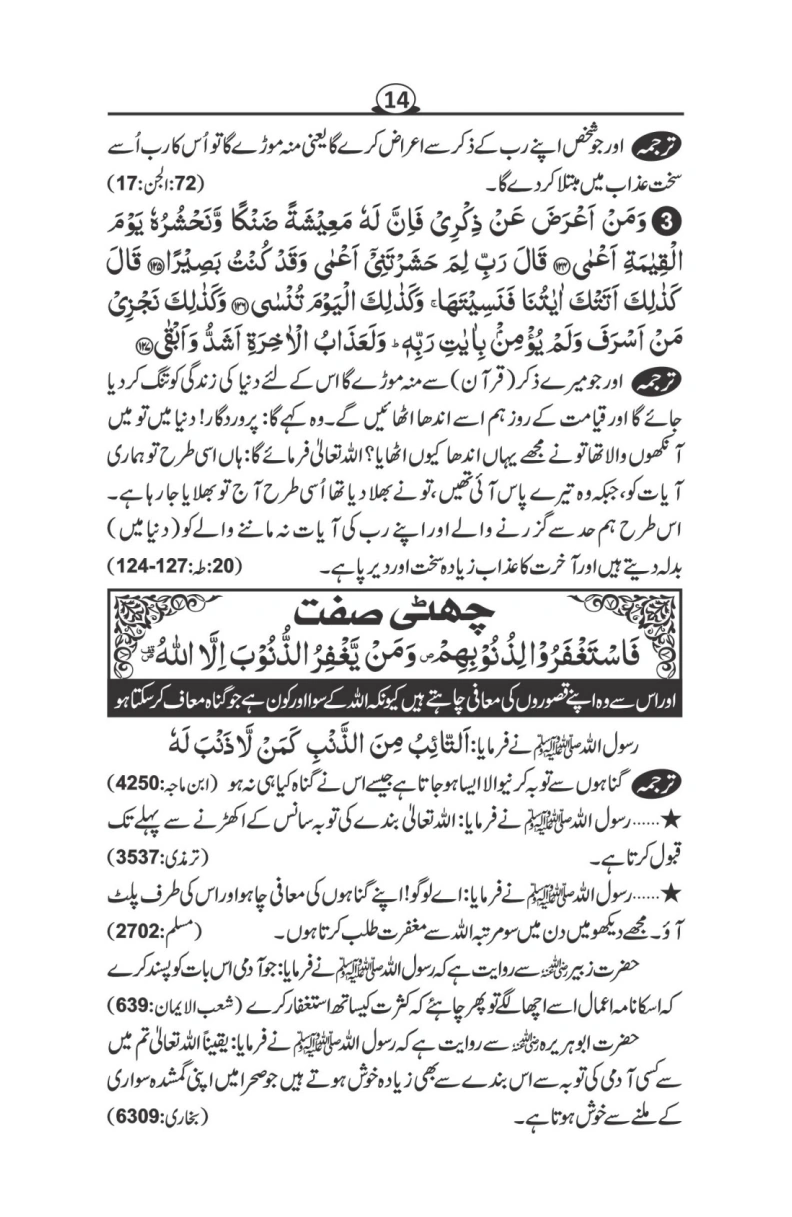 14
ترجمہ اور جو شخص اپنے رب کے ذکر سے اعراض کرے گا یعنی منہ موڑے گا تو اُس کا رب اُسے
سخت عذاب میں مبتلا کر دے گا۔ (72:الجن:17)
3 وَمَنْ اَعْرَضَ عَنْ ذِكْرِىْ فَاِنَّ لَهٗ مَعِيْشَةً ضَنْكًا وَّنَحْشُرُهٗ يَوْمَ
الْقِيٰمَةِ اَعْمٰى ۱۲۴ قَالَ رَبِّ لِمَ حَشَرْتَنِىْٓ اَعْمٰى وَقَدْ كُنْتُ بَصِيْرًا ۱۲۵ قَالَ
كَذٰلِكَ اَتَتْكَ اٰيٰتُنَا فَنَسِيْتَهَا ۚ وَكَذٰلِكَ الْيَوْمَ تُنْسٰى ۱۲۶ وَكَذٰلِكَ نَجْزِىْ
مَنْ اَسْرَفَ وَلَمْ يُؤْمِنْۢ بِاٰيٰتِ رَبِّهٖ ؕ وَلَعَذَابُ الْاٰخِرَةِ اَشَدُّ وَاَبْقٰى ۱۲۷
ترجمہ اور جو میرے ذکر (قرآن) سے منہ موڑے گا اس کے لئے دنیا کی زندگی کو تنگ کر دیا
جائے گا اور قیامت کے روز ہم اسے اندھا اٹھائیں گے۔ وہ کہے گا: پروردگار! دنیا میں تو میں
آنکھوں والا تھا تو نے مجھے یہاں اندھا کیوں اٹھایا؟ اللہ تعالیٰ فرمائے گا: ہاں اسی طرح تو ہماری
آیات کو، جبکہ وہ تیرے پاس آئی تھیں، تو نے بھلا دیا تھا اُسی طرح آج تو بھلایا جا رہا ہے۔
اس طرح ہم حد سے گزرنے والے اور اپنے رب کی آیات نہ ماننے والے کو (دنیا میں)
بدلہ دیتے ہیں اور آخرت کا عذاب زیادہ سخت اور دیر پا ہے۔ (20:طہ:127-124)
چھٹی صفت
فَاسْتَغْفَرُوْا لِذُنُوْبِهِمْ ۪ وَمَنْ يَّغْفِرُ الذُّنُوْبَ اِلَّا اللّٰهُ ۪ۚ
اور اس سے وہ اپنے قصوروں کی معافی چاہتے ہیں کیونکہ اللہ کے سوا اور کون ہے جو گناہ معاف کر سکتا ہو
رسول اللہ ﷺ نے فرمایا: اَلتَّائِبُ مِنَ الذَّنْبِ كَمَنْ لَّا ذَنْبَ لَهُ
ترجمہ گناہوں سے توبہ کرنیوالا ایسا ہو جاتا ہے جیسے اس نے گناہ کیا ہی نہ ہو (ابن ماجہ:4250)
★......رسول اللہ ﷺ نے فرمایا: اللہ تعالیٰ بندے کی توبہ سانس کے اکھڑنے سے پہلے تک
قبول کرتا ہے۔ (ترمذی:3537)
★......رسول اللہ ﷺ نے فرمایا: اے لوگو! اپنے گناہوں کی معافی چاہو اور اس کی طرف پلٹ
آؤ۔ مجھے دیکھو میں دن میں سو مرتبہ اللہ سے مغفرت طلب کرتا ہوں۔ (مسلم:2702)
حضرت زبیر رضی اللہ عنہ سے روایت ہے کہ رسول اللہ ﷺ نے فرمایا: جو آدمی اس بات کو پسند کرے
کہ اسکا نامہ اعمال اسے اچھا لگے تو پھر چاہئے کہ کثرت کیساتھ استغفار کرے (شعب الایمان:639)
حضرت ابوہریرہ رضی اللہ عنہ سے روایت ہے کہ رسول اللہ ﷺ نے فرمایا: یقیناً اللہ تعالیٰ تم میں
سے کسی آدمی کی توبہ سے اس بندے سے بھی زیادہ خوش ہوتے ہیں جو صحرا میں اپنی گمشدہ سواری
کے ملنے سے خوش ہوتا ہے۔ (بخاری:6309)